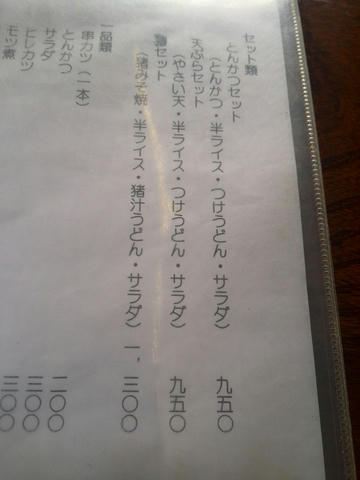 セット類
とんかつセット
(とんかつ・半ライス・つけうどん・サラダ) 九五〇
天ぷらセット
(やさい天・半ライス・つけうどん・サラダ) 九五〇
猪セット
(猪みそ焼・半ライス・猪汁うどん・サラダ) 一、三〇〇
一品類
串カツ(一本)
とんかつ
サラダ 二〇〇
ヒレカツ 三〇〇
モツ煮 三〇〇